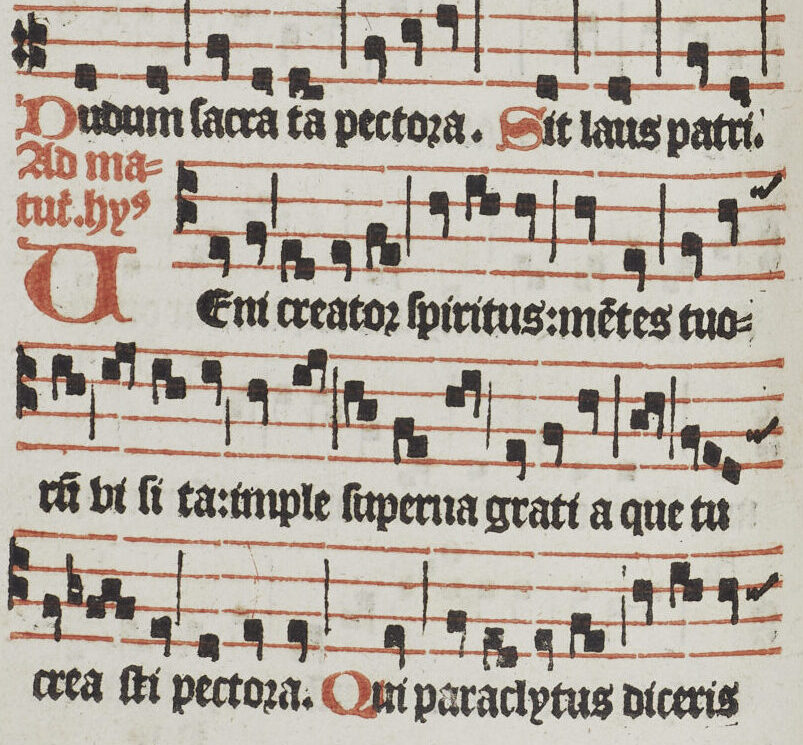 Dudum ſacra ta pectoꝛa. Sit laus patri.
Ad ma⸗
tut̃.hyꝰ
VEni creatoꝛ ſpiritus:mẽtes tuo⸗
rũ vi ſi ta:imple ſuperna grati a que tu
crea ſti pectoꝛa. Qui paraclytus diceris